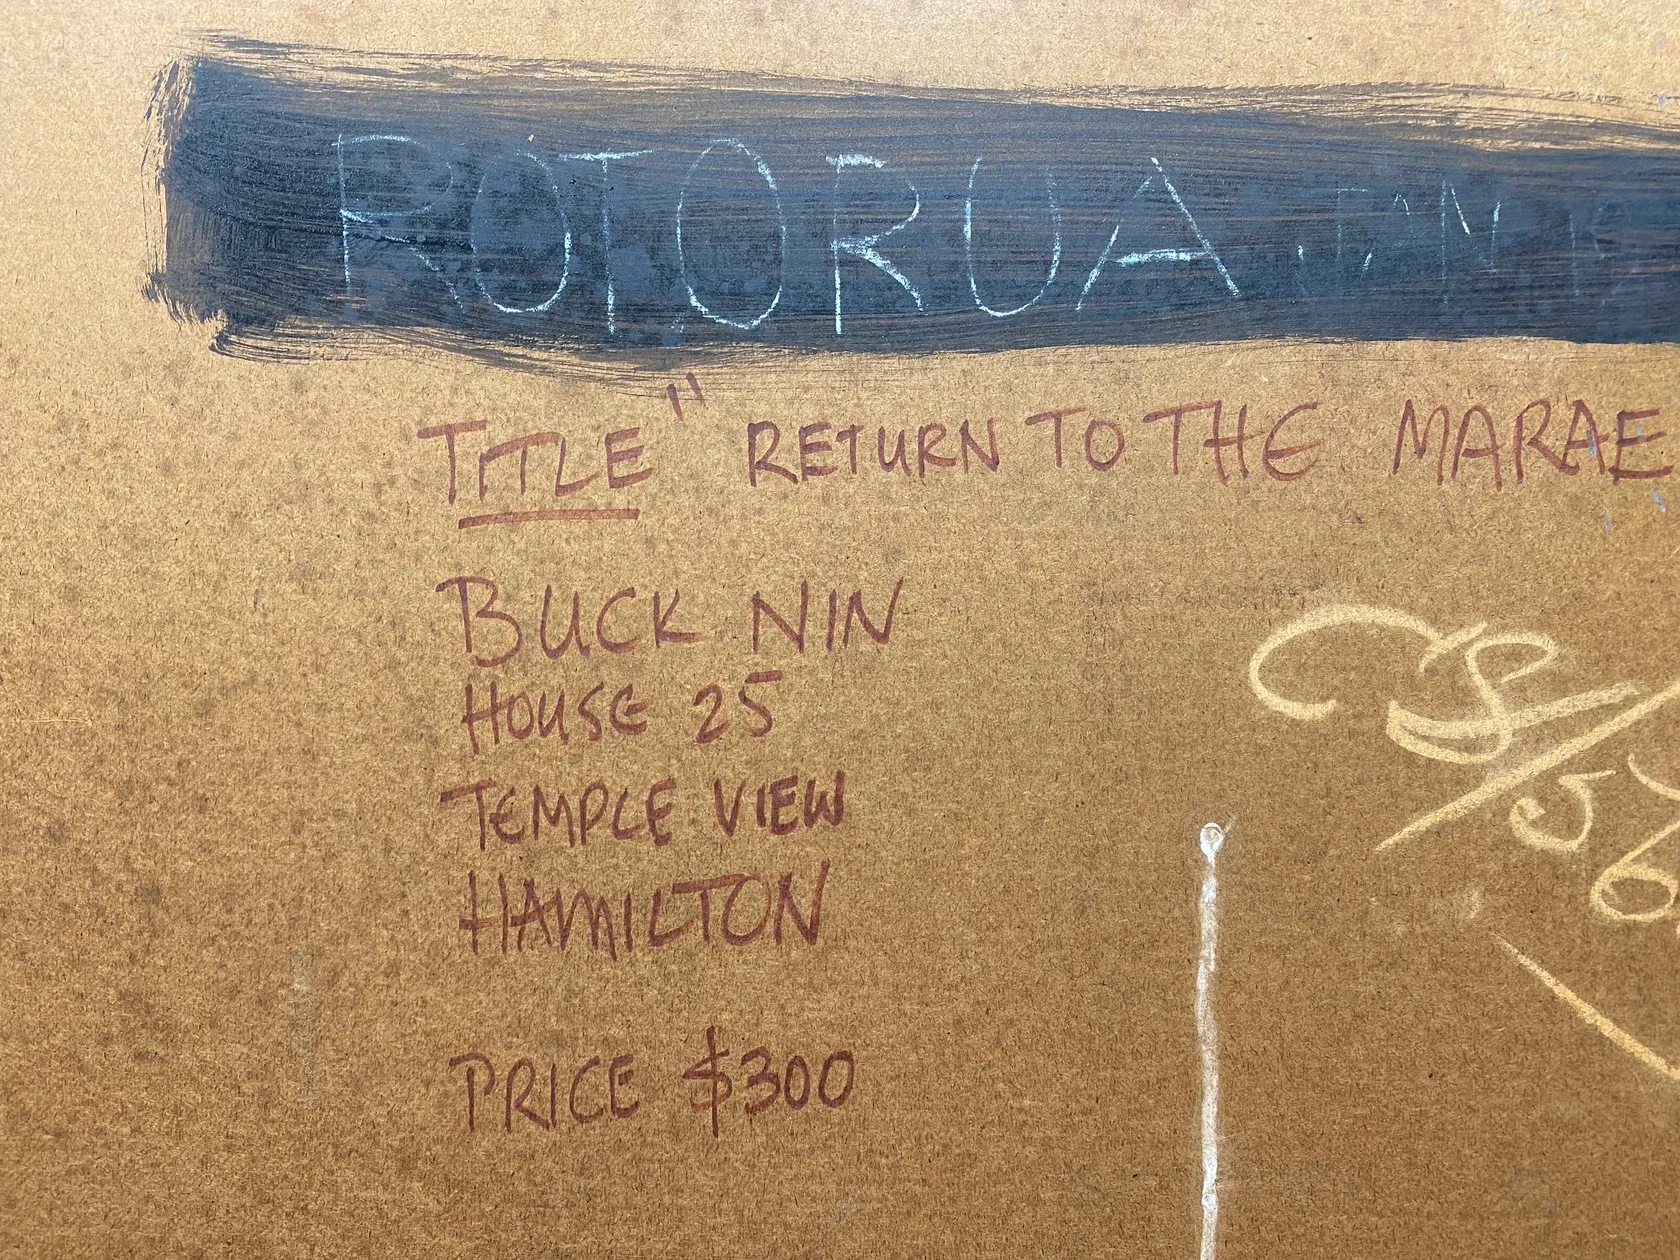 ROTORUA
TITLE " RETURN TO THE MARAE
BUCK NIN
HOUSE 25
TEMPLE VIEW
HAMILTON
PRICE $300